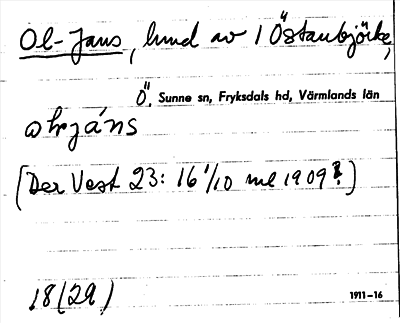 Ol-Jans, lund av 1 Östanbjörke,
Ö, Sunne sn, Fryksdals hd, Värmlands län
[Der Vest 23: 16 1/10 ml 1909?]
18(29)
1911-16